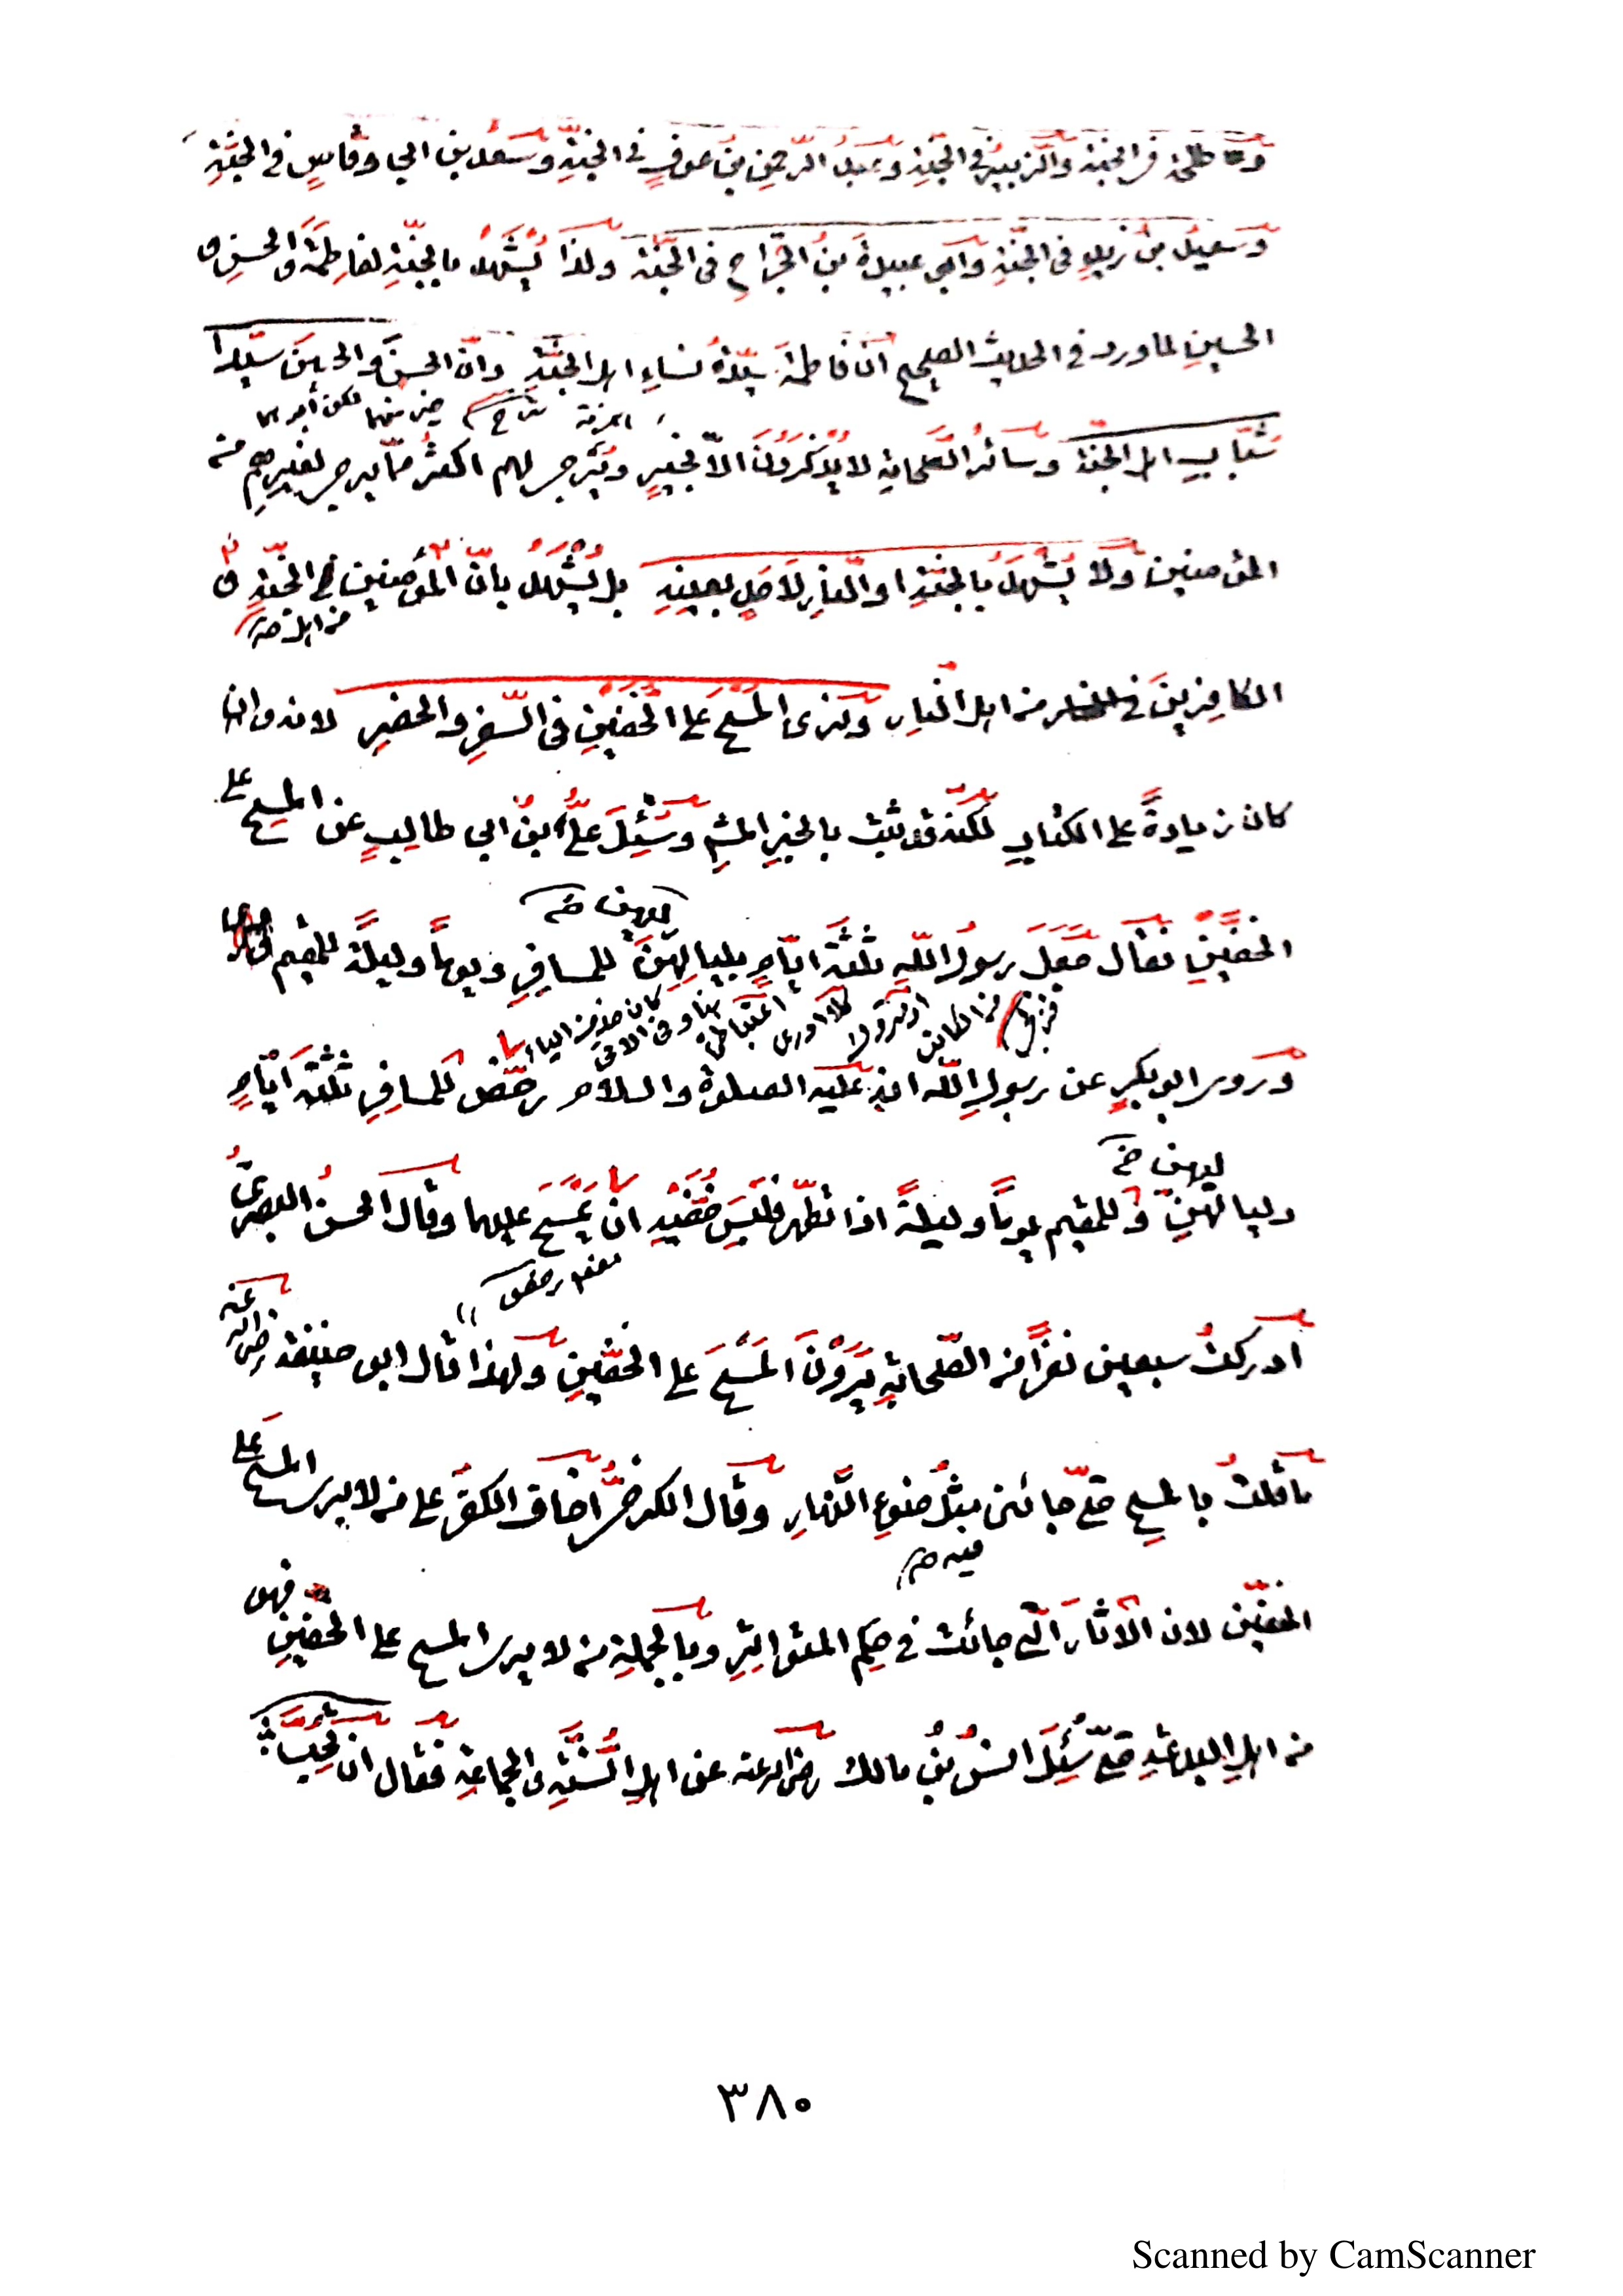 وطلحة في الجنة والزبيرُ في الجنّةِ وعبدُ الرّحمن بنُ عوفٍ في الجنّةِ وسَعدُ بن ابي وقّاصٍ في الجنّةِ
وسعيدُ بنُ زيدٍ في الجنّةِ وابي عبيدةَ بنُ الجَرّاحِ في الجنّة وكذا يُشْهَدُ بالجنّةِ لفاطِمَةَ والحسنِ و
الحسينِ لما ورد في الحديث الصحيح انّ فاطمةَ سيّدةُ نساءِ اهل الجنّةِ وانّ الحسنَ والحسينَ سيّدا
شبابِ اهل الجنّة وسائرُ الصّحابةِ لا يُذْكَرُونَ الاّ بخيرٍ ويُرجى لهم اكثرُ ممّا يرجى لغيرهم من
المؤمنين ولا يُشْهَدُ بالجنّةِ او النّارِ لاَحدٍ بعينِهِ بل يُشْهَدُ بانّ المؤمنين في الجنّةِ و
من اهل
الكافِرِينَ في من اهل النّارِ ونرى المَسْحَ على الخُفّينِ في السّفرِ والحضرِ لانه وان
كان زيادةً على الكتابِ لكنّه قد ثبت بالخبر المش وسُئِلَ عليُّ بنُ ابي طالبٍ عن المسحِ على
الخفّينِ فقال جَعَلَ رسولُ اللّهِ ثلثةَ ايّامٍ بلياليهنَّ للمسافرِ ويوماً وليلةً للمقيم
وروى ابو بكرٍ عن رسولِ اللّه انه عليه الصلوة والسلام رخّص للمسافرِ ثلثةَ ايّامٍ
ولياليهنّ وللمقيم يوماً وليلةً اذا تطهّر فلَبِسَ خُفّيْهِ ان يَمْسَحَ عليهما وقال الحسنُ البصريُّ
ادركتُ سبعين نفراً من الصّحابةِ يَرَوْنَ المَسْحَ على الخفّينِ ولهذا قال ابو حنيفة رضي الله عنه
ما قلتُ بالمسحِ حتّى جائنى مثلُ ضوءِ النّهارِ وقال الكرخىُّ اخاف الكفرَ على من لا يرى المسحَ على
فيه
الخفّين لان الآثارَ الّتى جائت في حكم المتواترِ وبالجملةِ من لا يرى المسح على الخفّينِ فهو
من اهلِ البدعةِ حتّى سُئِلَ انسُ بنُ مالك رضي الله عنه عن اهلِ السّنّةِ والجماعةِ فقال ان تُحِبَّ
٣٨٠
Scanned by CamScanner